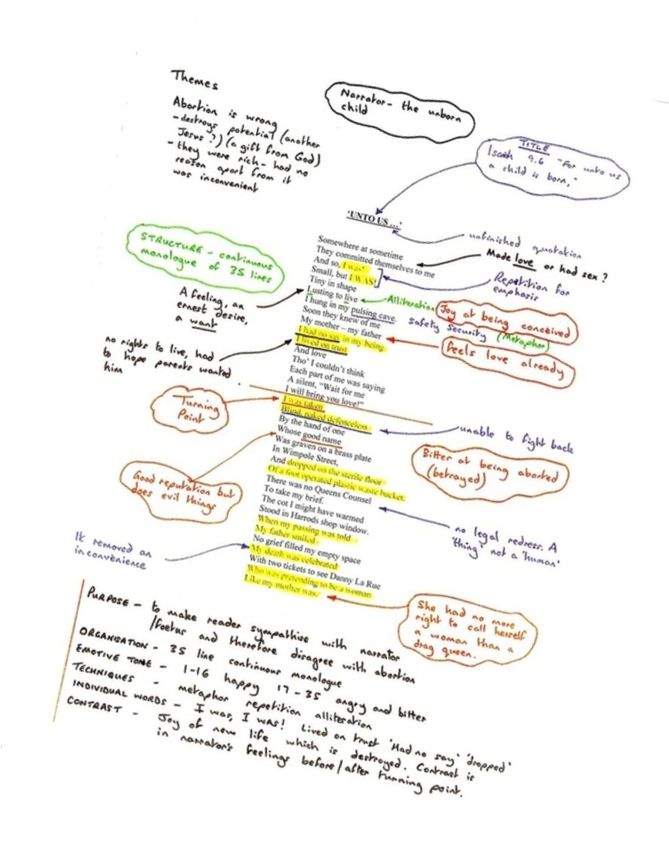 Themes
Abortion is wrong
- destroys potential (another
Jesus?) (a gift from God)
- they were rich - had no
reason apart from it
was inconvenient
Narrator - the unborn
child
TITLE
Isaiah 9.6 "For unto us
a child is born,"
'UNTO US...'
unfinished quotation
STRUCTURE - continuous
monologue of 35 lines
Somewhere at sometime
They committed themselves to me
And so, I was!
Small, but I WAS!
Tiny in shape
Lusting to live
I hung in my pulsing cave.
Soon they knew of me
My mother – my father
I had no say in my being
I lived on trust
And love
Tho' I couldn't think
Each part of me was saying
A silent, "Wait for me
I will bring you love!"
I was taken
Blind, naked defenceless
By the hand of one
Whose good name
Was graven on a brass plate
In Wimpole Street,
And dropped on the sterile floor
Of a foot operated plastic waste bucket.
There was no Queens Counsel
To take my brief.
The cot I might have warmed
Stood in Harrods shop window.
When my passing was told
My father smiled.
No grief filled my empty space
My death was celebrated
With two tickets to see Danny La Rue
Who was pretending to be a woman
Like my mother was.
Made love or had sex?
Repetition for
emphasis
Alliteration
Joy at being conceived
safety security (Metaphor)
Feels love already
A feeling, an
ernest desire,
a want
no rights to live, had
to hope parents wanted
him
Turning
Point
unable to fight back
Bitter at being aborted
(betrayed)
Good reputation but
does evil things
no legal redress. A
'thing' not a 'human'
It removed an
inconvenience
She had no more
right to call herself
a woman than a
drag queen.
PURPOSE - to make reader sympathise with narrator
/foetus and therefore disagree with abortion
ORGANISATION - 35 line continuous monologue
EMOTIVE TONE - 1-16 happy 17-35 angry and bitter
TECHNIQUES - metaphor repetition alliteration
INDIVIDUAL WORDS - I was, I was! Lived on trust 'Had no say' 'dropped'
CONTRAST - Joy of new life which is destroyed. Contrast is
in narrator's feelings before/after turning point.